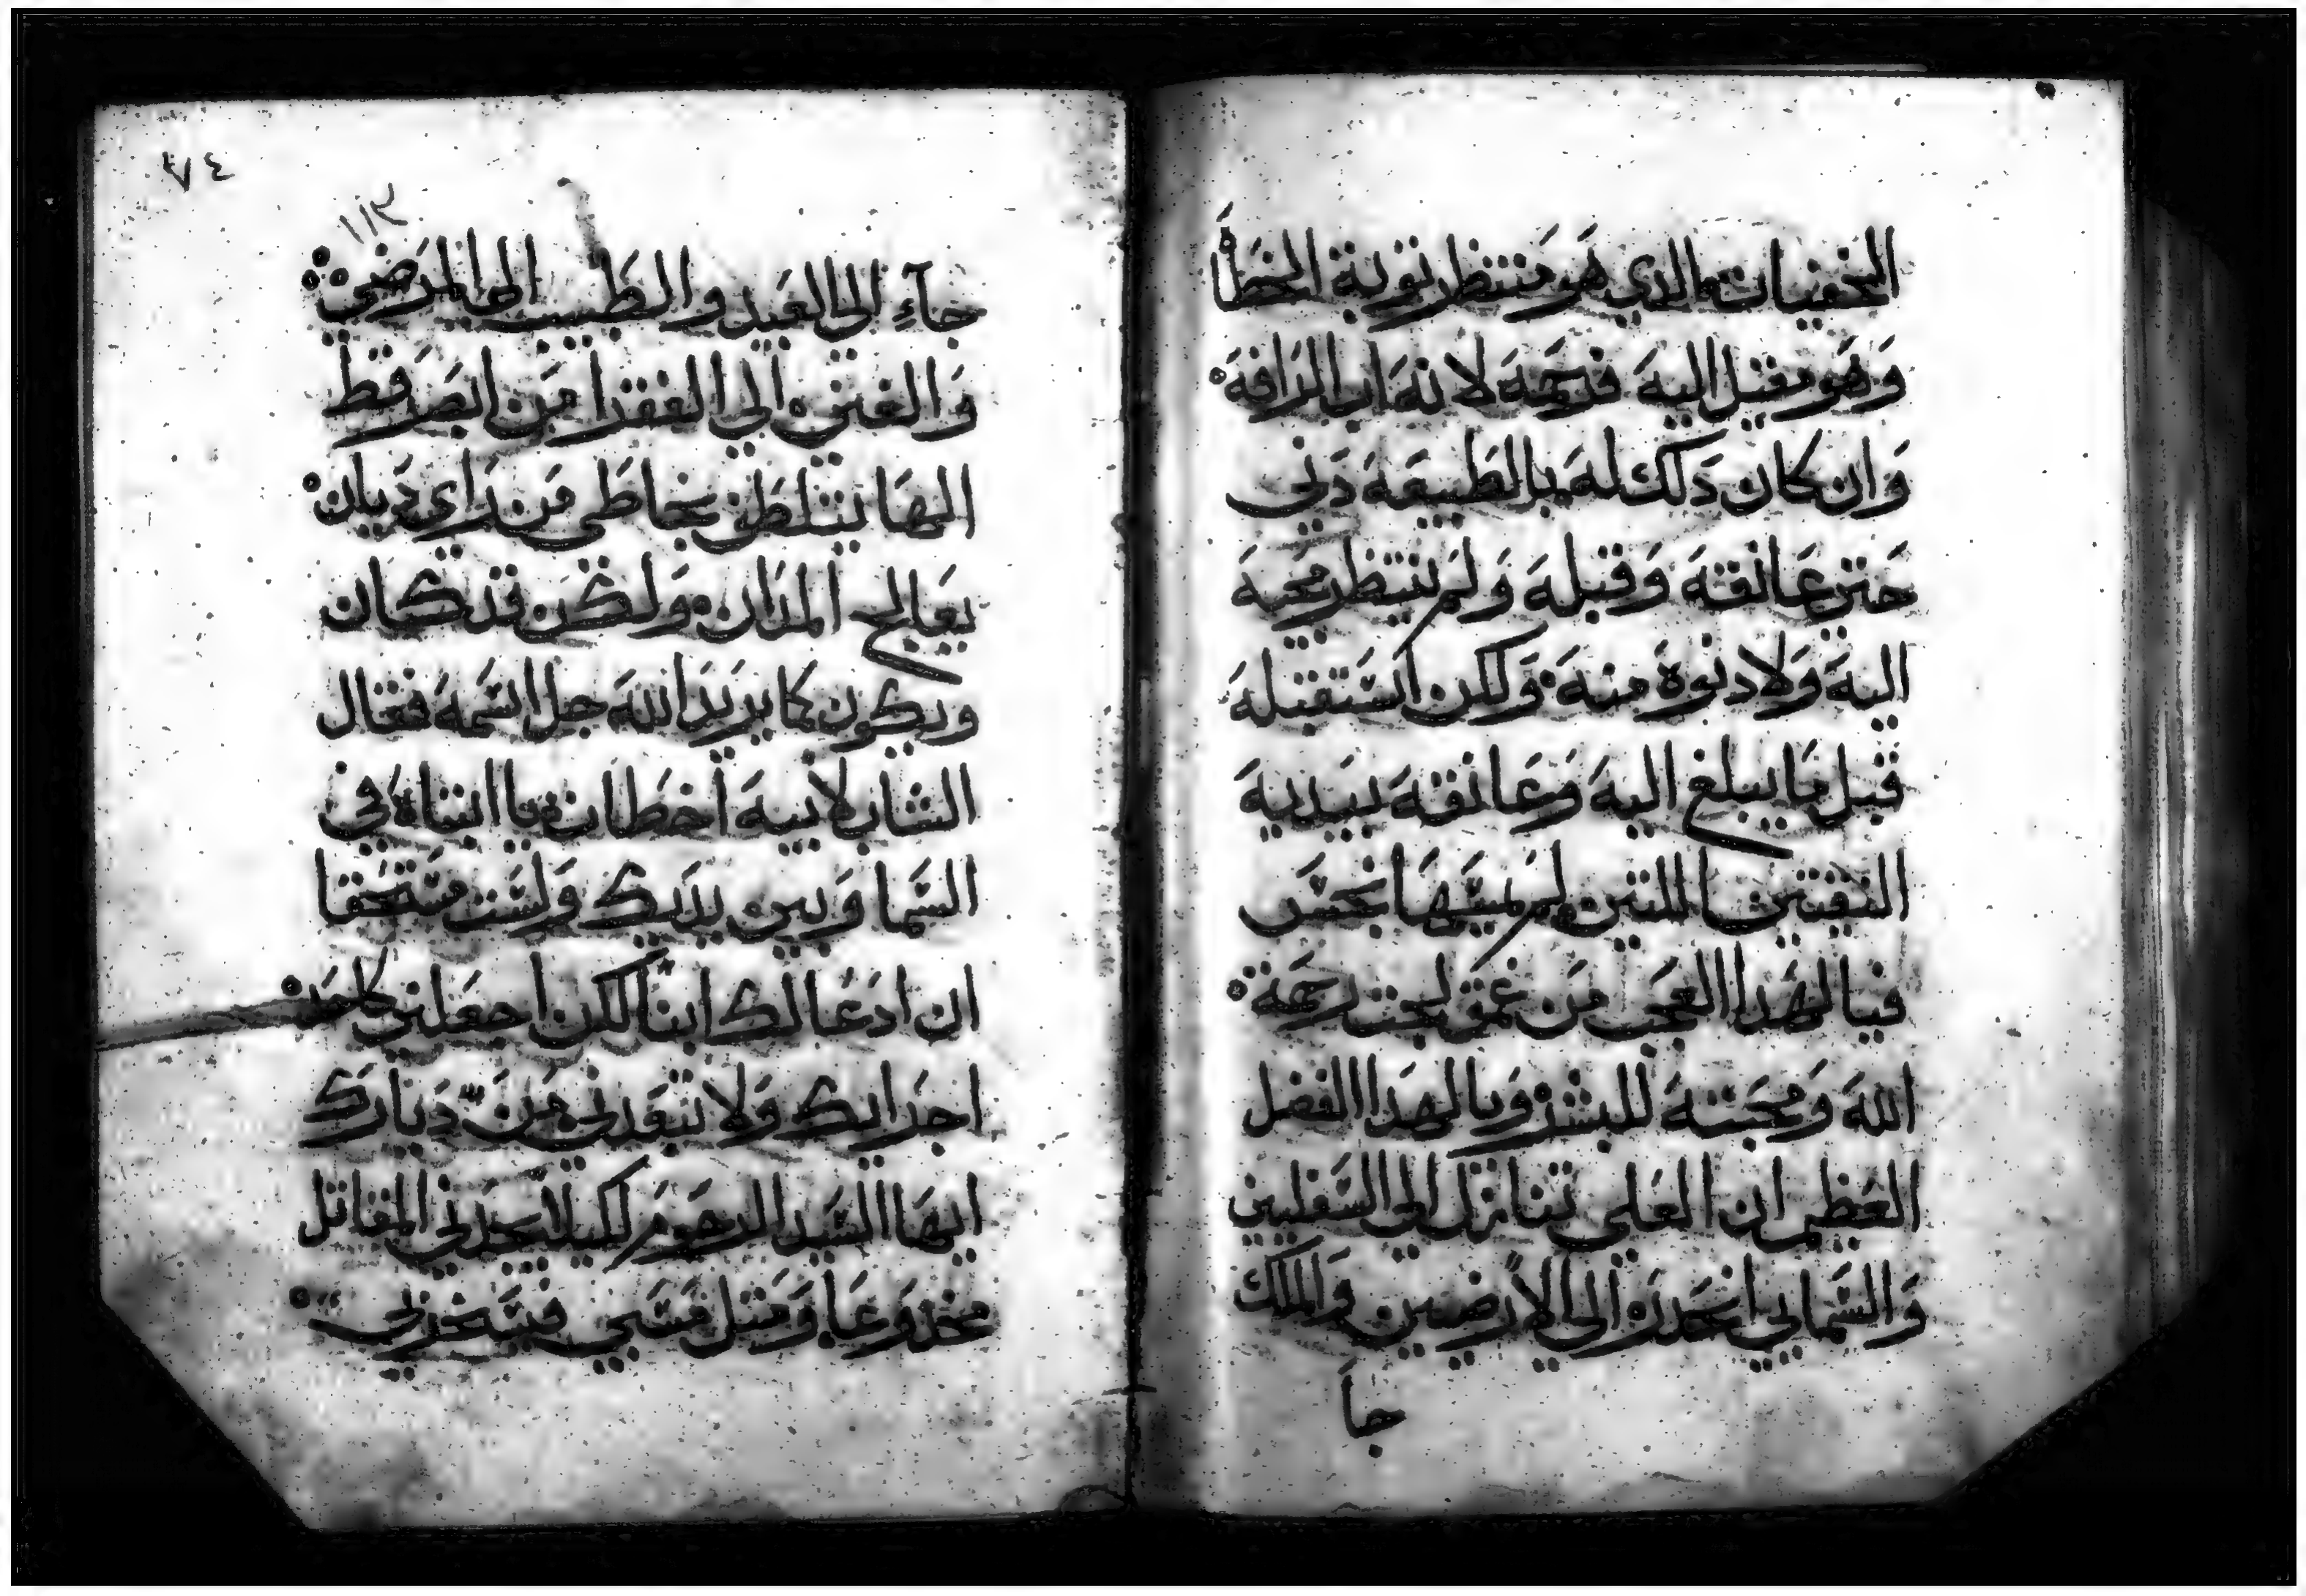 الخفيات الدي هو منتظر توبة الخطاَ
وَهَو مقبل اليهَ فرحمهَ لانهَ اب الرَافهَ
وَان كان دَلك لهَ بالطَبيعَهَ دَني
حَتي عَانقهَ وَقبلهَ وَلم ينتظر مجيهَ
اليهَ وَلا دنوهَ منهَ وَلكن اسَتقبلهَ
قبل مَا يبلغ اليهَ وَعَانقهَ بيَديهَ
النقيتين اللتين لم يمسَهَا نجسَ
فيا لهَدا العجَب مَن عمق لجت رحَمة
اللهَ وَمحَبتهَ للبشر ويا لهَدا الفضل
العَظيم ان العَلي تنازل الي السَفليين
وَالسَماييَ انحَدرَ الي الارَضيين وَالملك
جاَ
٧٤
١١٣
جآءِ الي العَبيد والطَبيب الي المرَضي
وَالغني الي الفقرا مَن ابصَر قط
الهَا يتلطَف بخاطَي مَن رَاي ديان
يعَالج المدَان وَلكن قد كان
ويكون كما يريدَ اللهَ جل اسَمهَ فقال
الشاب لابيهَ اخطَات يا ابتاهَ في
السَما وَبين يديَك وَلسَت مسَتحَقا
ان ادعَا لك ابناً لكن اجعَلني كاحَد
اجرَايك وَلا تبعَدني مَن ديارَك
ايهَا السَيد الرحوَم لكيلا يجدَني المقاتل
مخدوعَا وَمتل مَسَبي فيسَخر بي